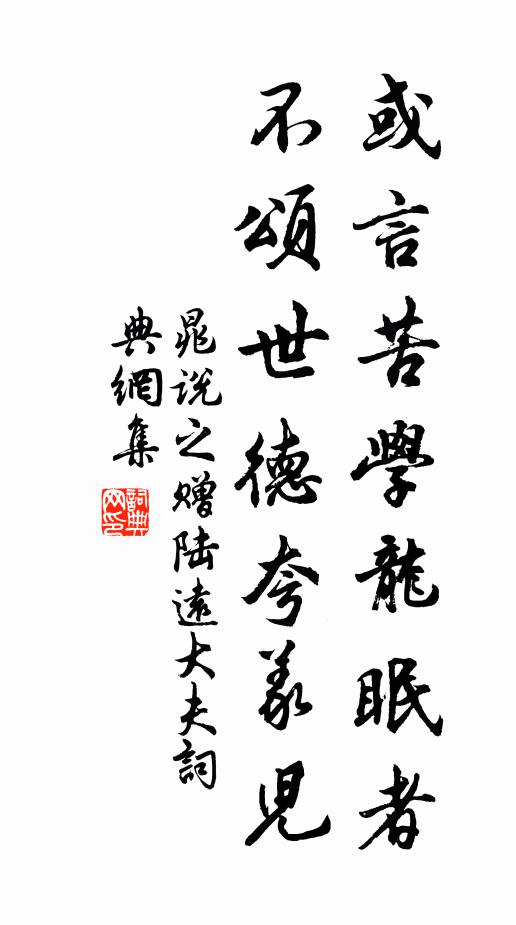 或言苦學龍眠者
不頌世德夸義兒
晁說之贈陸遠大夫詞
典網集
詞典
网印